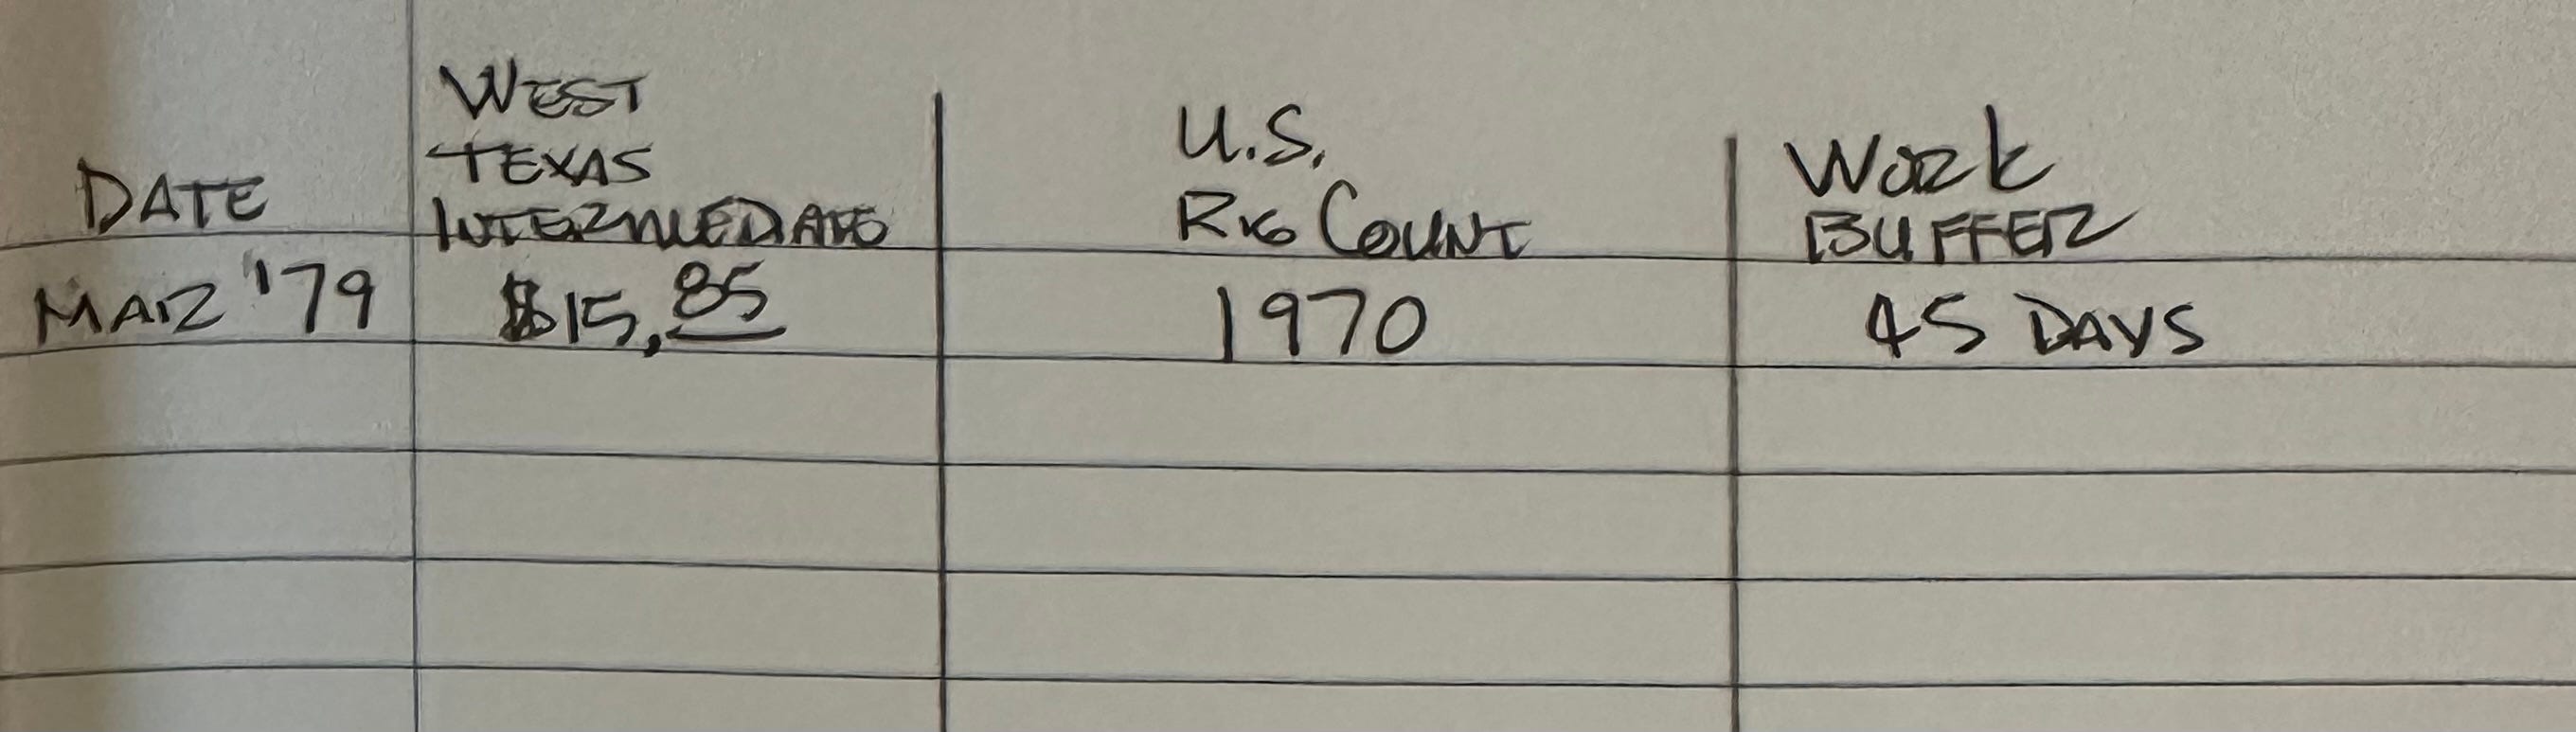 DATE
WEST
TEXAS
INTERMEDIATE
U.S.
RIG COUNT
WORK
BUFFER
MAR '79
$15.85
1970
45 DAYS